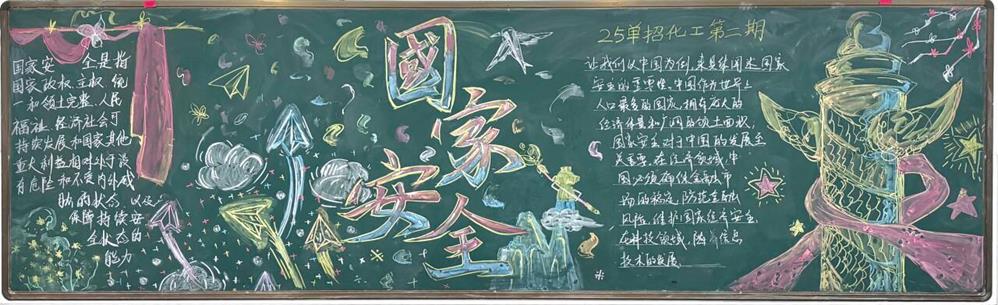 国家安 全是指
国家政权、主权、统
一和领土完整、人民
福祉、经济社会可
持续发展和国家其他
重大利益相对处于没
有危险和不受内外威
胁的状态,以及
保障持续安
全状态的
能力
國家安全
25单招化工第二期
让我们以中国为例,来具体阐述国家
安全的重要性。中国作为世界上
人口最多的国家,拥有庞大的
经济体量和广阔的领土面积,
国家安全对于中国的发展至
关重要。在经济领域,中
国必须确保金融市
场的稳定,防范金融
风险,维护国家经济安全,
在科技领域,随着信息
技术的发展